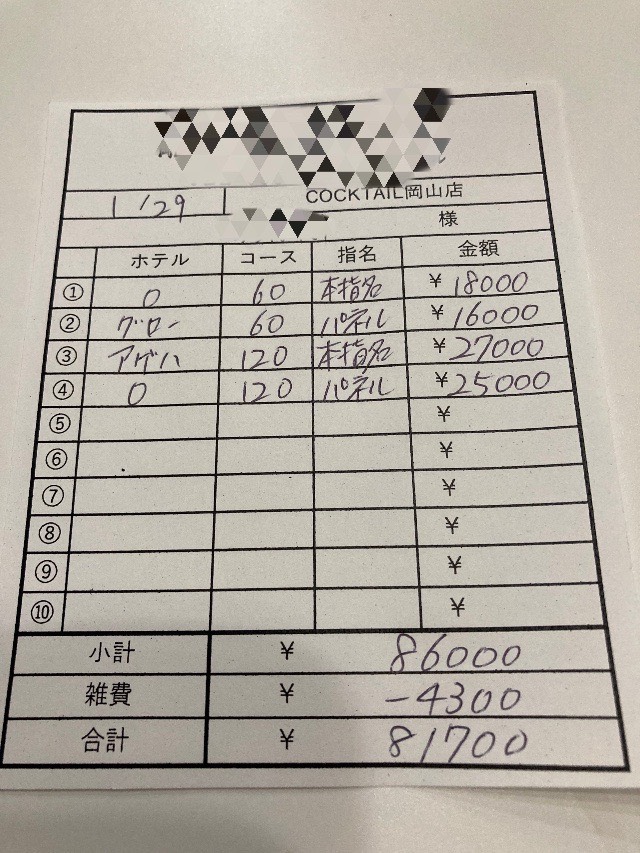 COCKTAIL岡山店
1/29
様
ホテル コース 指名 金額
① O 60 本指名 ¥18000
② グロー 60 パネル ¥16000
③ アゲハ 120 本指名 ¥27000
④ O 120 パネル ¥25000
⑤ ¥
⑥ ¥
⑦ ¥
⑧ ¥
⑨ ¥
⑩ ¥
小計 ¥ 86000
雑費 ¥ -4300
合計 ¥ 81700